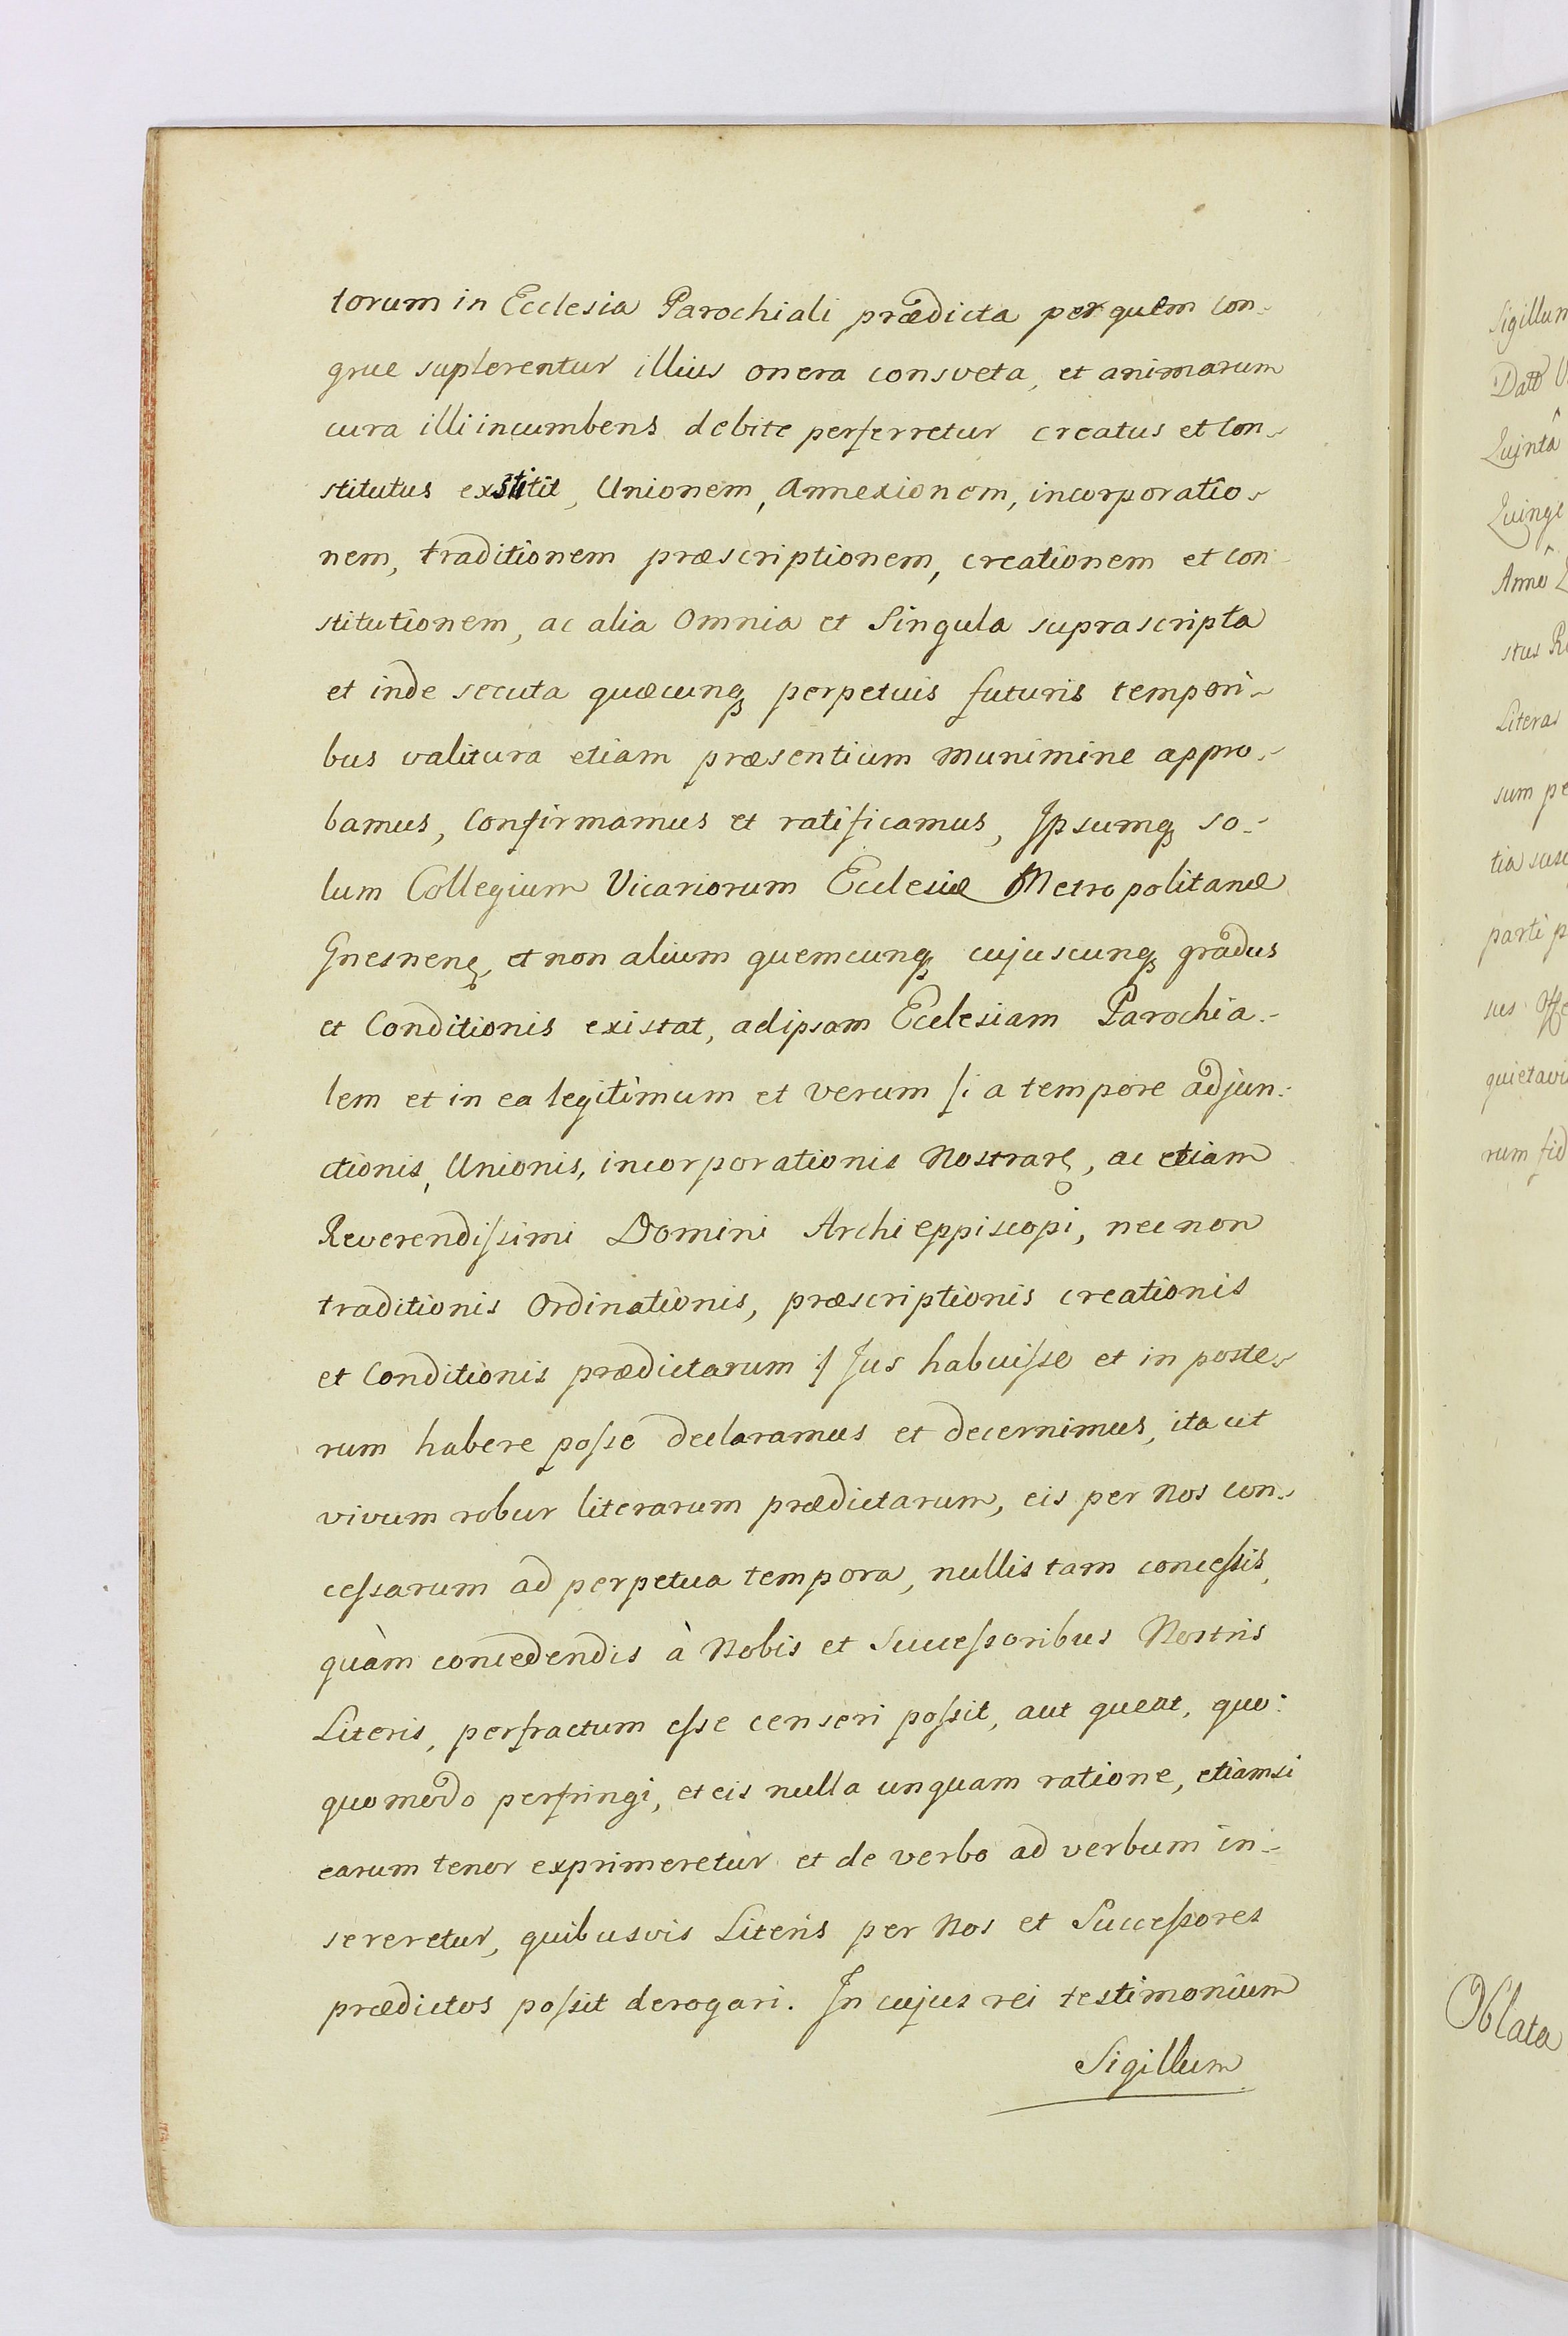 torum in Ecclesia Parochiali prædicta per quem con-
grue suplerentur illius onera consveta, et animarum
cura illi incumbens debite perferretur creatus et Con-
stitutus exstitit, Unionem, Annexionem, incorporatio-
nem, traditionem præscriptionem, creationem et con-
stitutionem, ac alia Omnia et Singula suprascripta
et inde secuta quæcunqꝫ perpetuis futuris tempori-
bus valitura etiam præsentium munimine appro-
bamus, Confirmamus et ratificamus, Ipsumqꝫ so-
lum Collegium Vicariorum Ecclesiæ Metropolitanæ
Gnesnenꝫ, et non alium quemcunqꝫ cujuscunqꝫ gradus
et Conditionis existat, ad ipsam Ecclesiam Parochia-
lem et in ea legitimum et verum /: a tempore adjun-
ctionis, Unionis, incorporationis Nostrarꝫ, ac etiam
Reverendissimi Domini Archieppiscopi, nec non
traditionis Ordinationis, præscriptionis creationis
et Conditionis prædictarum :/ Jus habuisse et in poste-
rum habere posse declaramus et decernimus, ita ut
vivum robur literarum prædictarum, eis per Nos con-
cessarum ad perpetua tempora, nullis tam concessis,
quàm concedendis à Nobis et Successoribus Nostris
Literis, perfractum esse censeri possit, aut queat, quo-
quomodo perfringi, et eis nulla unquam ratione, etiamsi
earum tenor exprimeretur et de verbo ad verbum in-
sereretur, quibusvis Literis per Nos et Successores
prædictos possit derogari. In cujus rei testimonium
Sigillum
Sigillum
Datt
Quintâ
Quinge
Anno
stus
Literas
sum pe
tia susc
parti p
sus Offe
quietavi
rum fid
Oblata